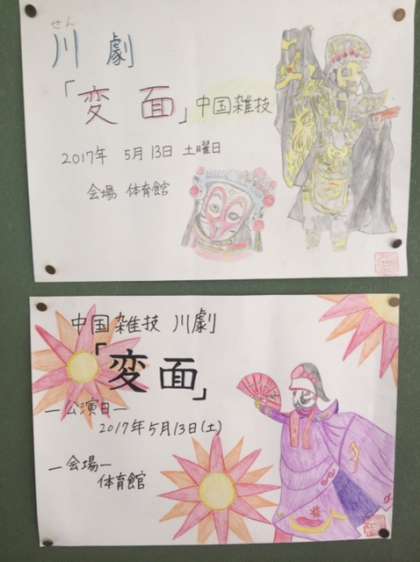 せん
川劇
「変面」中国雑技
2017年 5月13日 土曜日
会場 体育館
中国雑技 川劇
「変面」
—公演日—
2017年5月13日(土)
—会場—
体育館